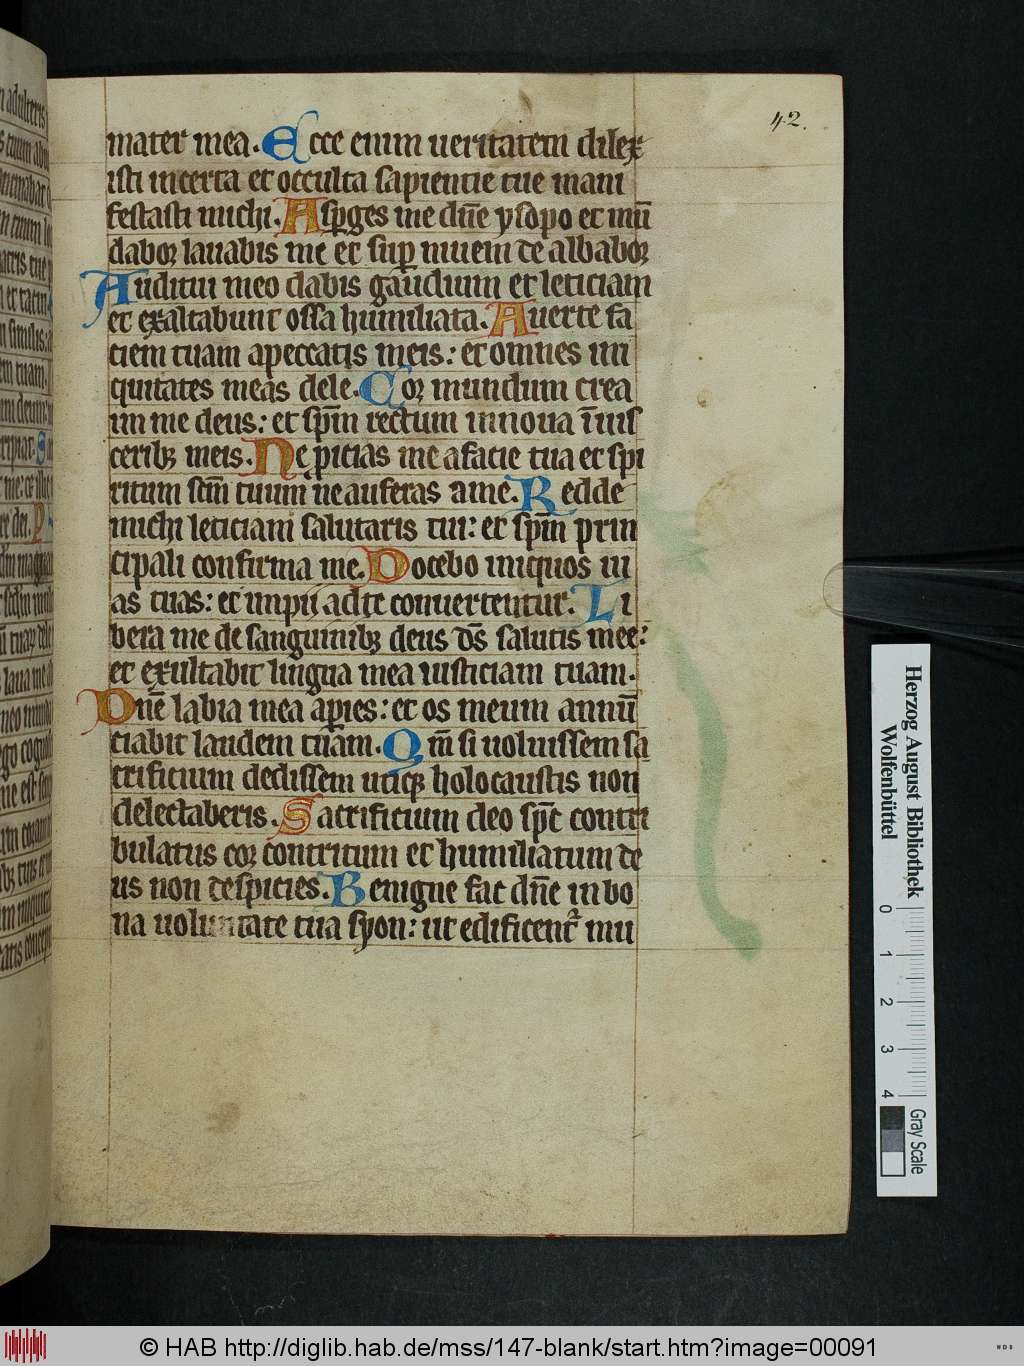 42.
mater mea. Ecce enim ueritatem dilex
isti incerta et occulta sapientie tue mani
festasti michi. Asꝑges me dn̄e ysopo et mū
daboꝛ lauabis me et suꝑ niuem de albaboꝛ
Auditui meo dabis gaudium et leticiam
et exaltabunt ossa humiliata. Auerte fa
ciem tuam apeccatis meis: et omnes ini
quitates meas dele. Coꝛ mundum crea
in me deus: et sp̄m rectum innoua ī uis
ceribꝫ meis. Ne ꝓicias me afacie tua et spi
ritum sc̄m tuum ne auferas ame. Redde
michi leticiam salutaris tui: et sp̄m prin
cipali confirma me. Docebo iniquos ui
as tuas: et impii adte conuertentur. Li
bera me de sanguinibꝫ deus ds̄ salutis mee:
et exultabit lingua mea iusticiam tuam.
Dn̄e labia mea aꝑies: et os meum annū
ciabit laudem tuam. Qm̄ si uoluissem sa
crificium dedissem utiqꝫ holocaustis non
delectaberis. Sacrificium deo sp̄c contri
bulatus coꝛ contritum et humiliatum de
us non despicies. Benigne fac dn̄e in bo
na uoluntate tua syon: ut edificent᷑ mu
Herzog August Bibliothek
Wolfenbüttel
0 1 2 3 4
Gray Scale
© HAB http://diglib.hab.de/mss/147-blank/start.htm?image=00091